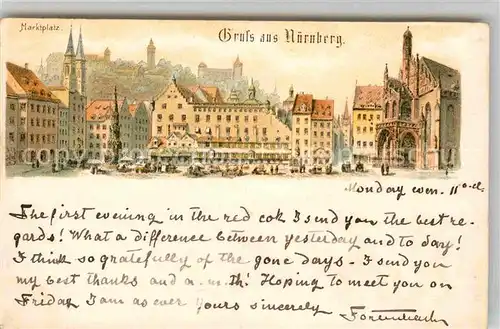 Marktplatz.
Gruss aus Nürnberg.
Monday 11 o.cl.
The first evening in the red I send you the best re-
gards! What a difference between yesterday and to day!
I think so gratefully of the gone days. I send you
my best thanks and a. m. th! Hoping to meet you on
Friday I am as ever yours sincerely